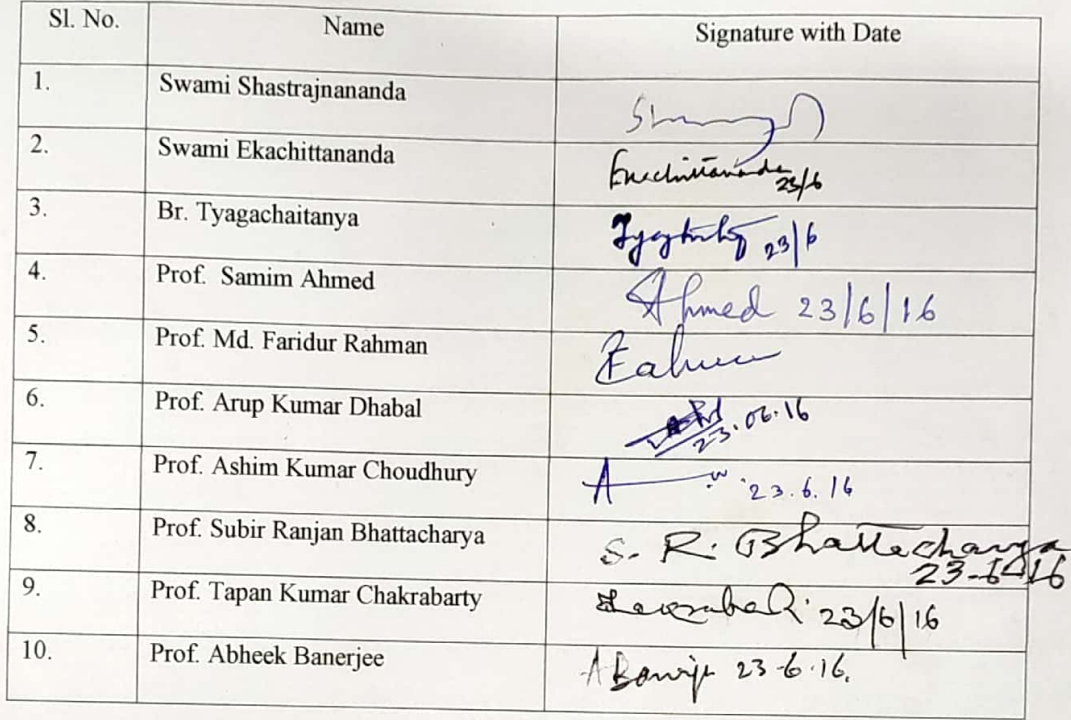 Sl. No. Name Signature with Date
1. Swami Shastrajnananda
2. Swami Ekachittananda Ekachittananda 23/6
3. Br. Tyagachaitanya 23/6
4. Prof. Samim Ahmed Ahmed 23/6/16
5. Prof. Md. Faridur Rahman
6. Prof. Arup Kumar Dhabal 23.06.16
7. Prof. Ashim Kumar Choudhury 23.6.16
8. Prof. Subir Ranjan Bhattacharya S. R. Bhattacharya
23-6-16
9. Prof. Tapan Kumar Chakrabarty 23/6/16
10. Prof. Abheek Banerjee ABanerjee 23-6-16.